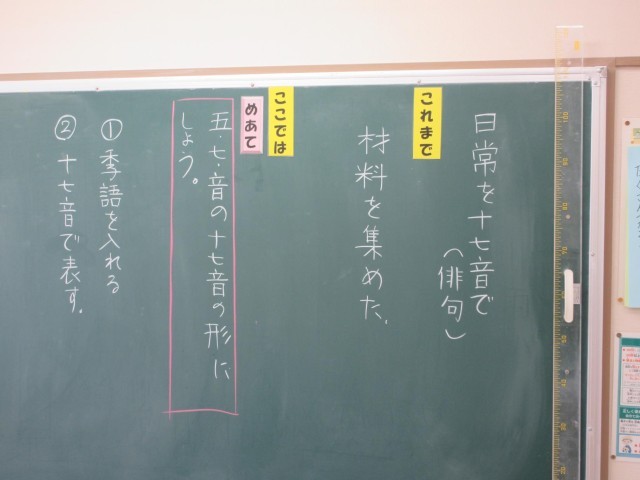 日常を十七音で
（俳句）
これまで
材料を集めた。
ここでは
めあて
五・七・音の十七音の形に
しょう。
①季語を入れる
②十七音で表す。